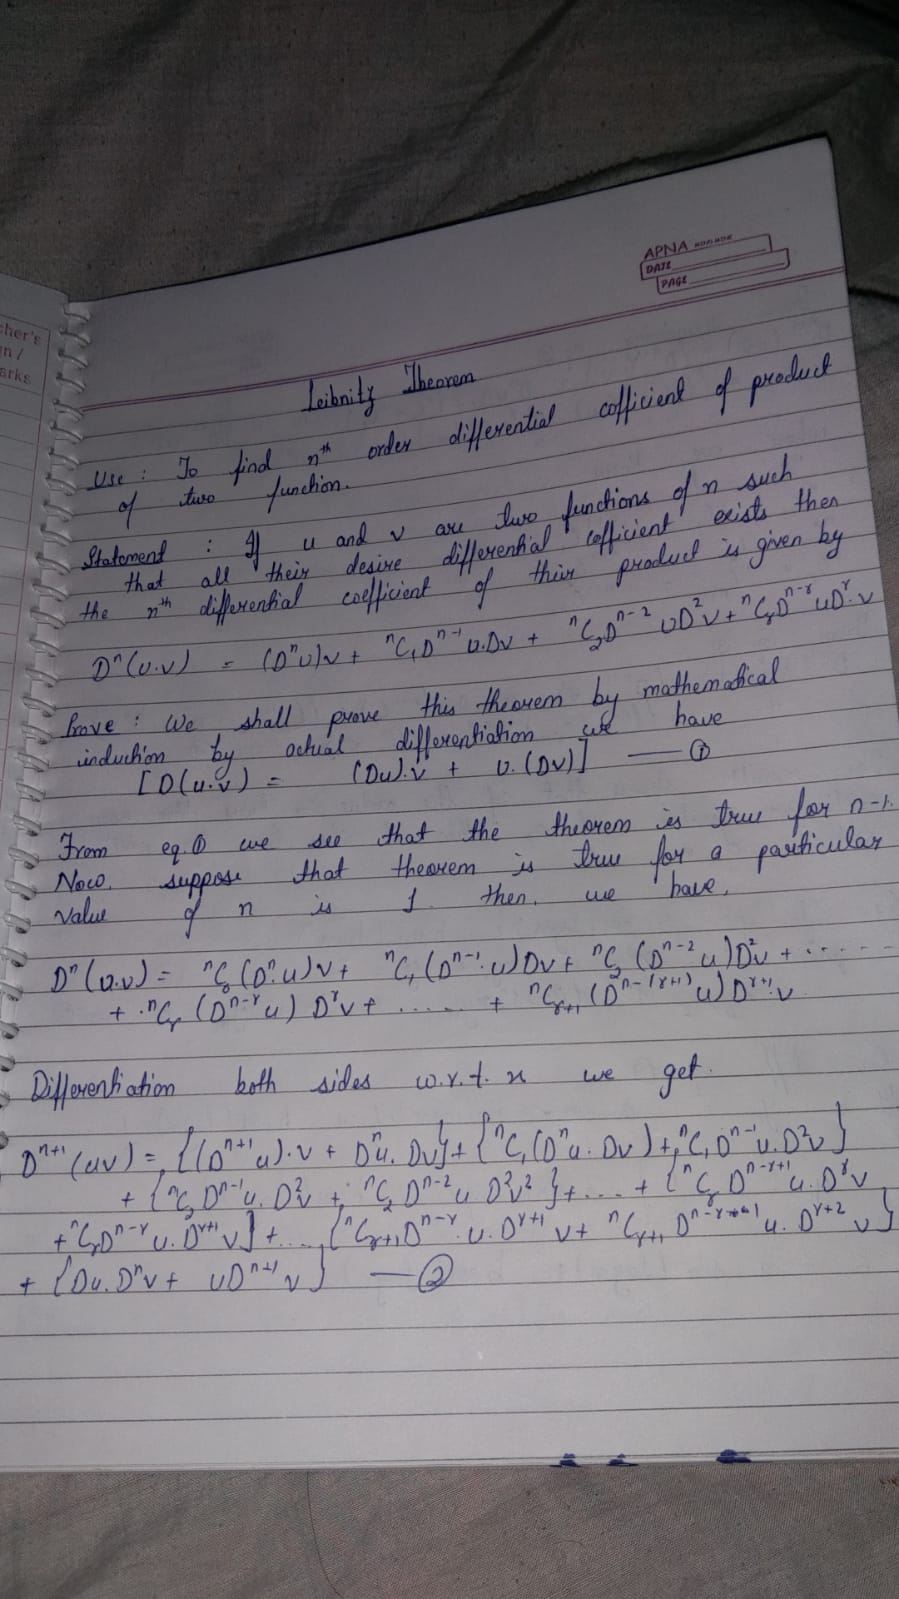 cher's
n /
arks
APNA
DATE
PAGE
Leibnitz Theorem
Use : To find nᵗʰ order differential cofficient of product
of two function.
Statement : If u and v are two functions of n such
that all their desire differential cofficient exists then
the nᵗʰ differential coefficient of thier product is given by
Dⁿ(u.v) = (Dⁿu)v + ⁿC₁Dⁿ⁻¹u.Dv + ⁿC₂Dⁿ⁻² UD²v + ⁿCᵣDⁿ⁻ʳuDʳ.v
Prove : We shall prove this theorem by mathematical
induction by actual differentiation we have
[D(u.v) = (Du).v + u.(Dv)] — ①
From eq.① we see that the theorem is true for n-1.
Now, suppose that theorem is true for a particular
value of n is 1 then, we have,
Dⁿ(u.v) = ⁿC₀(Dⁿ.u)v + ⁿC₁(Dⁿ⁻¹.u)Dv + ⁿC₂(Dⁿ⁻²u)D²v + ......
+ .ⁿCᵣ (Dⁿ⁻ʳu) Dʳv + ...... + ⁿCᵣ₊₁(Dⁿ⁻⁽ʳ⁺¹⁾u)Dʳ⁺¹.v
Differentiation both sides w.r.t. x we get.
Dⁿ⁺¹(uv) = {(Dⁿ⁺¹u).v + Dⁿu.Dv} + {ⁿC₁(Dⁿu.Dv) + ⁿC₁Dⁿ⁻¹u.D²v}
+ {ⁿC₂Dⁿ⁻¹u.D²v + ⁿC₂Dⁿ⁻²u D²v² } + .... + {ⁿCᵣDⁿ⁻ʳ⁺¹u.Dʳv
+ ⁿCᵣDⁿ⁻ʳu.Dʳ⁺¹v} + ... {ⁿCᵣ₊₁Dⁿ⁻ʳ.u.Dʳ⁺¹v + ⁿCᵣ₊₁ u.Dʳ⁺²v}
+ {Du.Dⁿv + uDⁿ⁺¹v} — ②